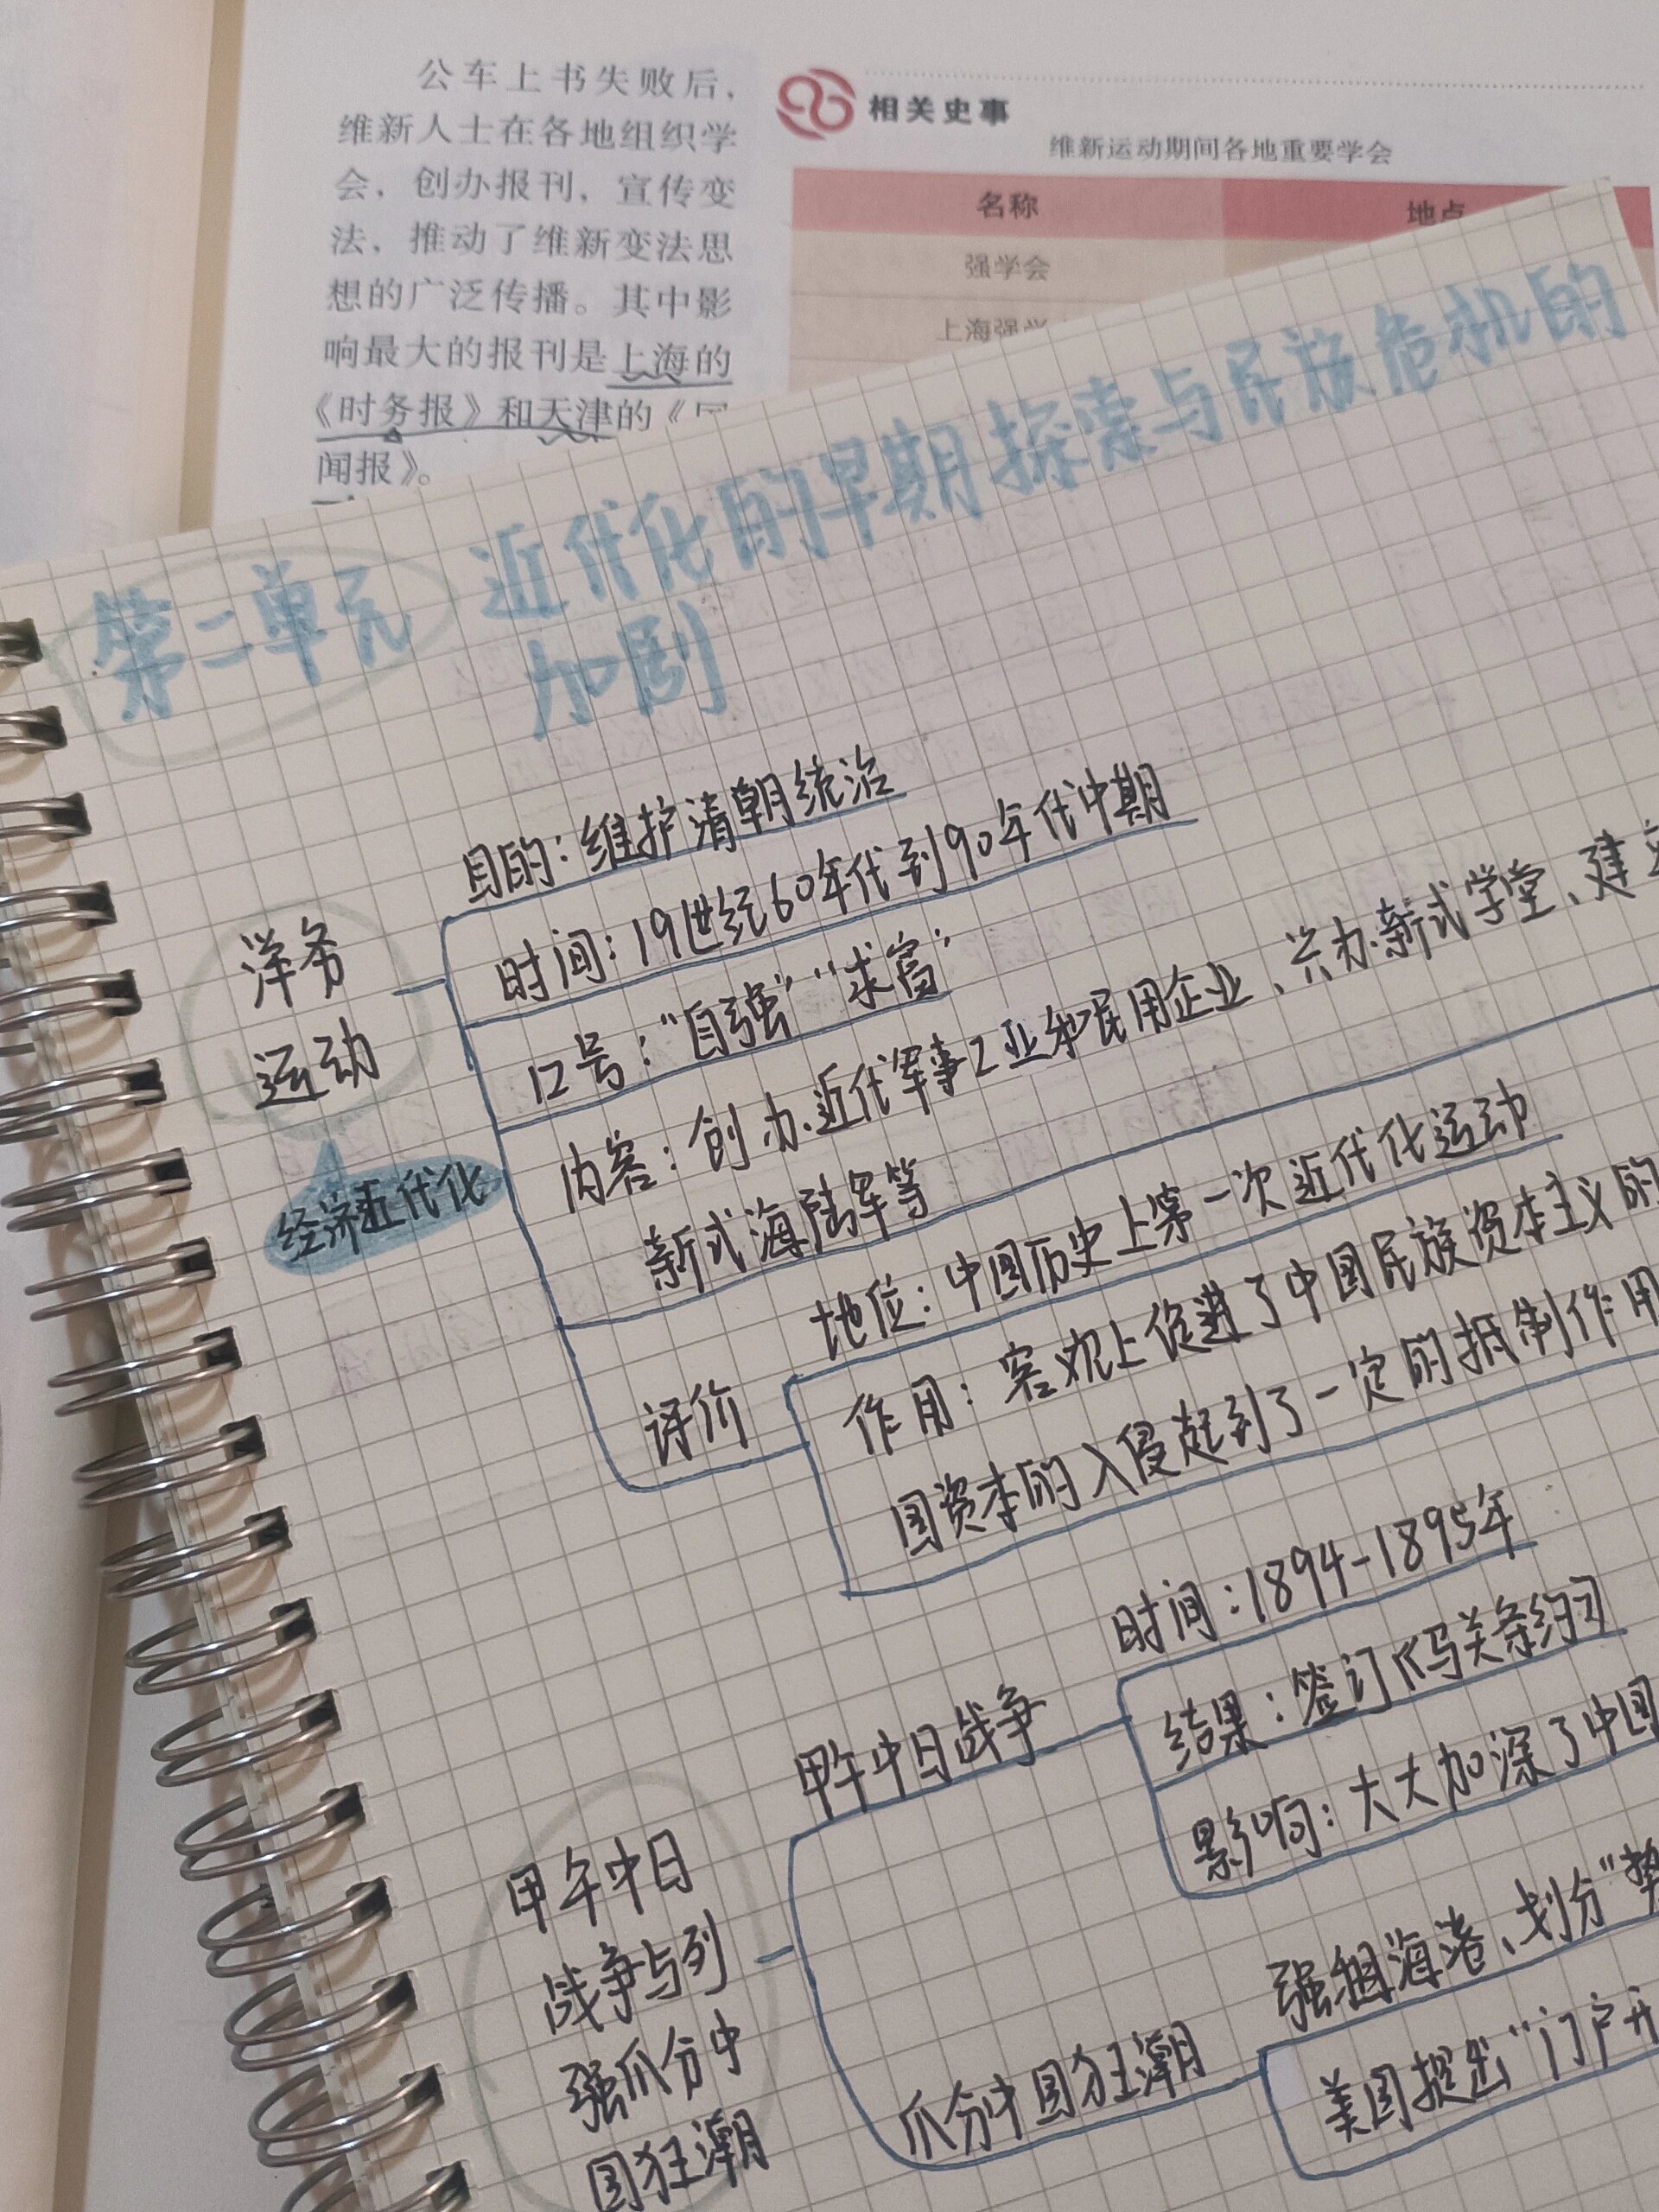 公车上书失败后，
维新人士在各地组织学
会，创办报刊，宣传变
法，推动了维新变法思
想的广泛传播。其中影
响最大的报刊是上海的
《时务报》和天津的《
闻报》。
相关史事
维新运动期间各地重要学会
名称 地点
强学会
上海强学
第二单元 近代化的早期探索与民族危机的
加剧
洋务
运动
经济近代化
目的：维护清朝统治
时间：19世纪60年代到90年代中期
口号："自强""求富"
内容：创办近代军事工业和民用企业、兴办新式学堂、建立
新式海陆军等
评价
地位：中国历史上第一次近代化运动
作用：客观上促进了中国民族资本主义的
国资本的入侵起到了一定的抵制作用
甲午中日
战争与列
强瓜分中
国狂潮
甲午中日战争
时间：1894-1895年
结果：签订《马关条约》
影响：大大加深了中国
瓜分中国狂潮
强租海港、划分"势
美国提出"门户开